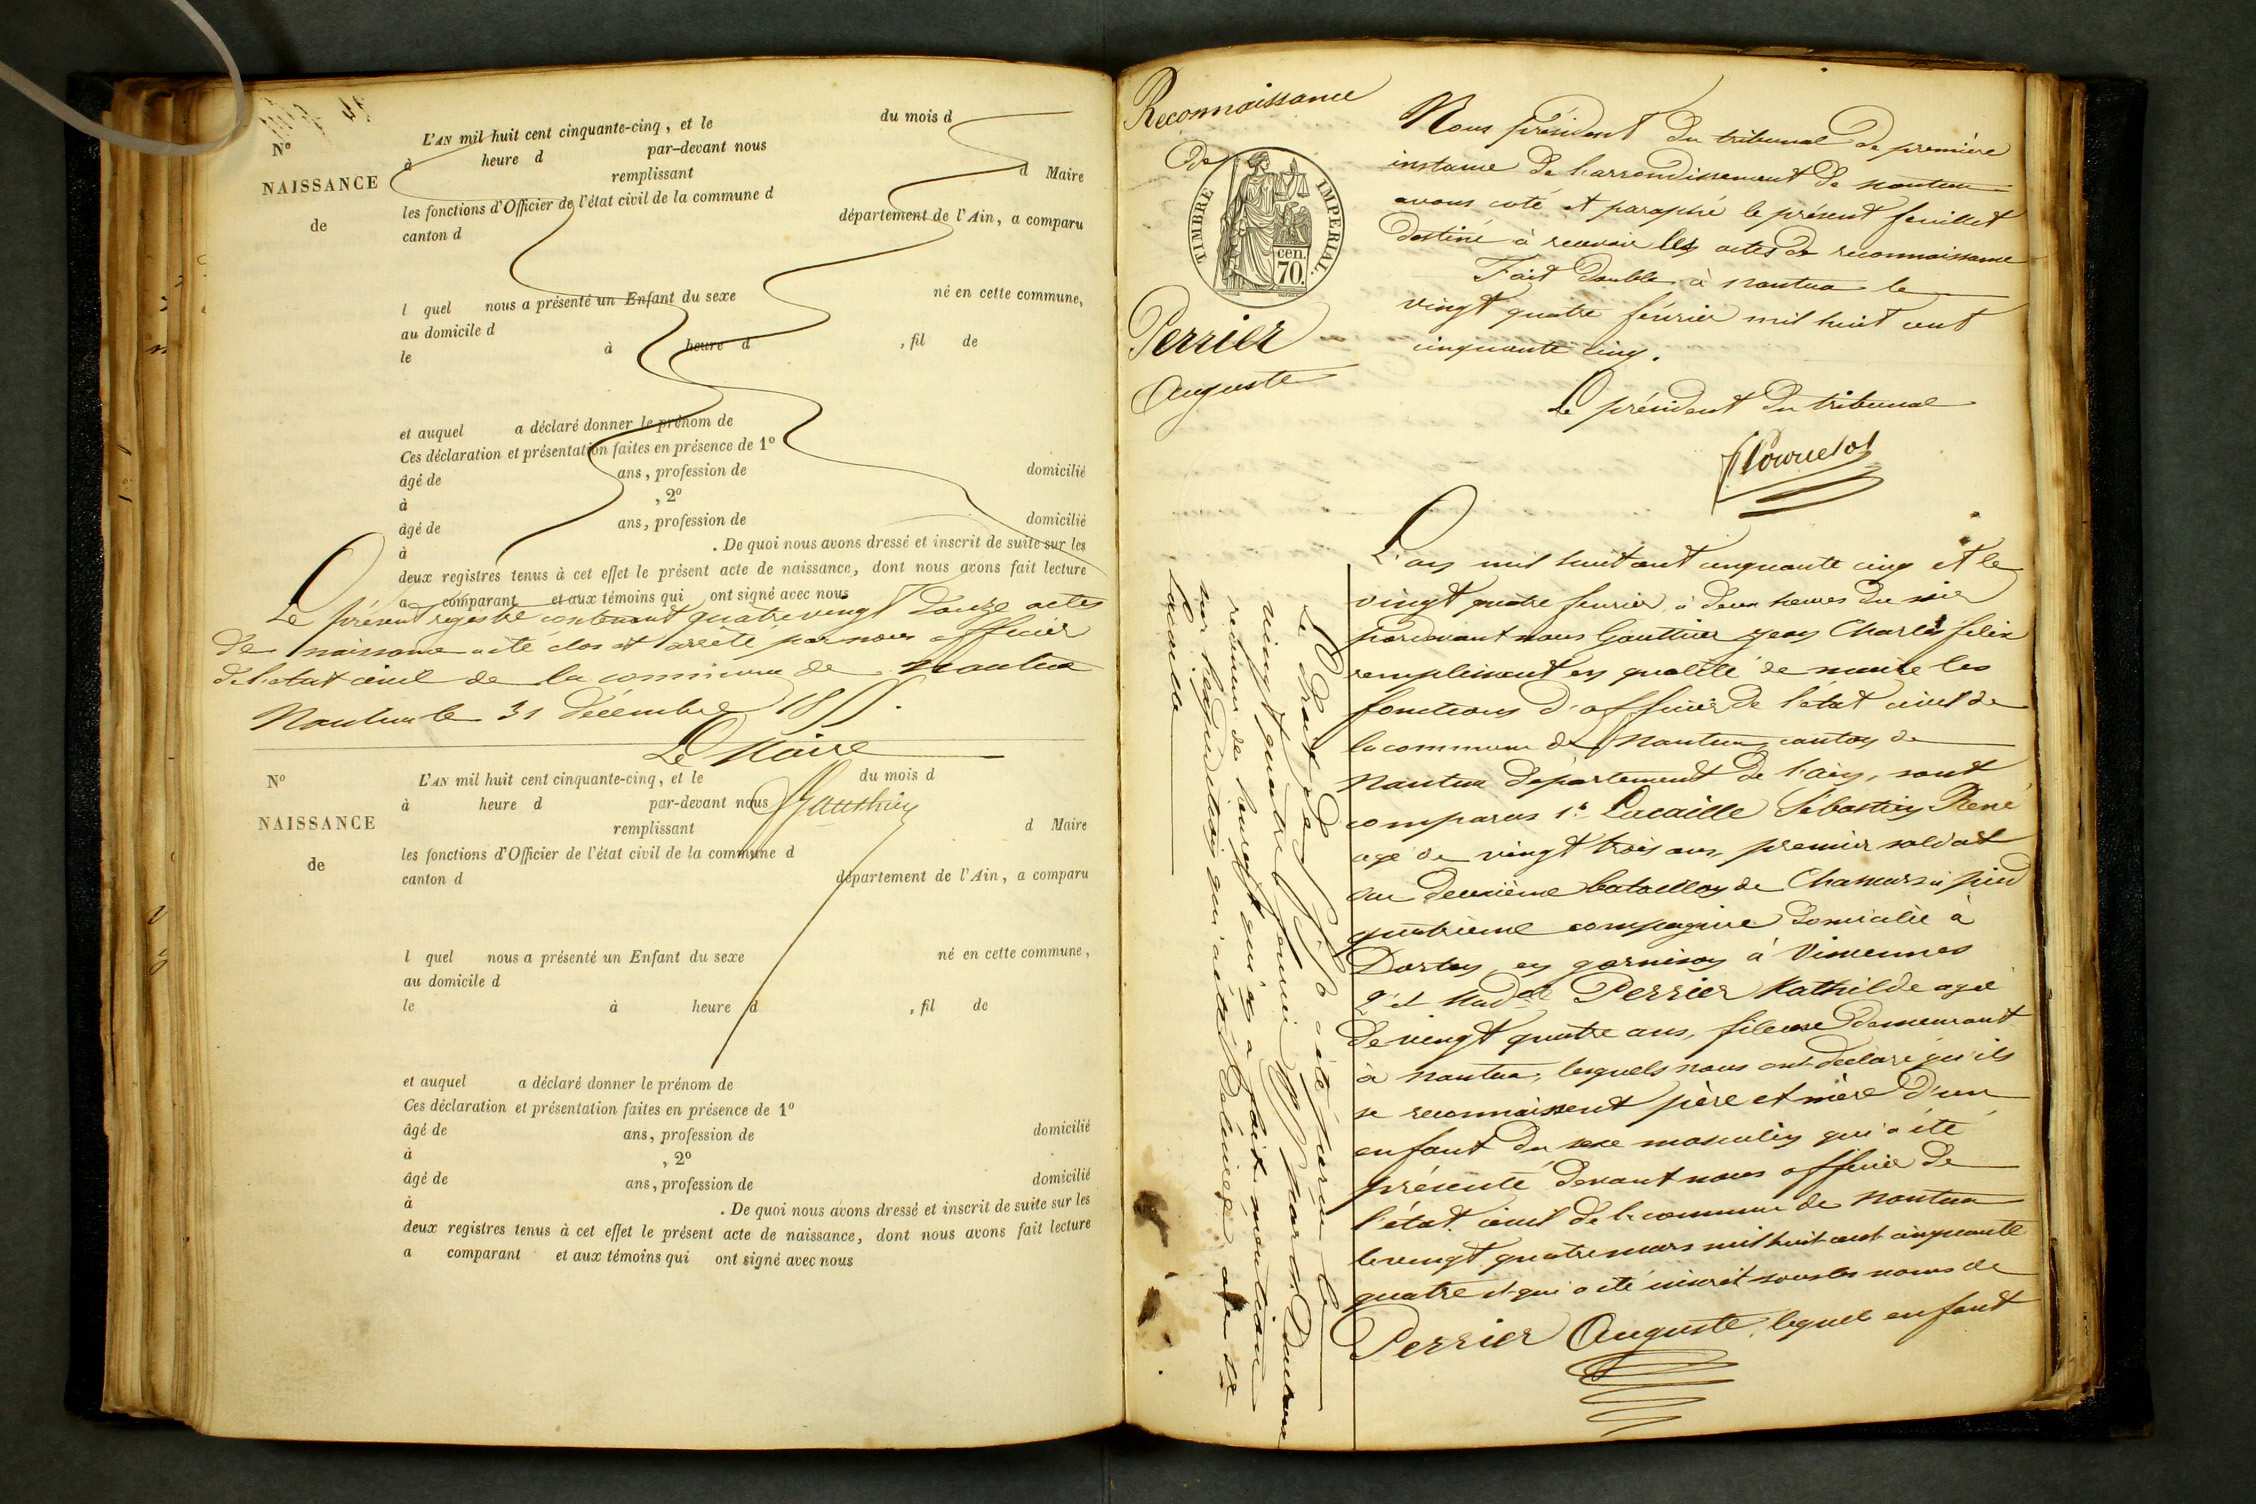 N°
NAISSANCE
de
L'AN mil huit cent cinquante-cinq, et le du mois d
à heure d par-devant nous
remplissant d Maire
les fonctions d'Officier de l'état civil de la commune d
canton d département de l'Ain, a comparu
l quel nous a présenté un Enfant du sexe né en cette commune,
au domicile d
le à heure d , fil de
et auquel a déclaré donner le prénom de
Ces déclaration et présentation faites en présence de 1°
âgé de ans, profession de domicilié
à , 2°
âgé de ans, profession de domicilié
à . De quoi nous avons dressé et inscrit de suite sur les
deux registres tenus à cet effet le présent acte de naissance, dont nous avons fait lecture
a comparant et aux témoins qui ont signé avec nous
Le présent registre contenant quatre vingt douze actes
de naissance a été clos et arrêté par nous officier
de l'état civil de la commune de Nantua
Nantua le 31 décembre 1855.
Le Maire
Gauthier
N°
NAISSANCE
de
L'AN mil huit cent cinquante-cinq, et le du mois d
à heure d par-devant nous
remplissant d Maire
les fonctions d'Officier de l'état civil de la commune d
canton d département de l'Ain, a comparu
l quel nous a présenté un Enfant du sexe né en cette commune,
au domicile d
le à heure d , fil de
et auquel a déclaré donner le prénom de
Ces déclaration et présentation faites en présence de 1°
âgé de ans, profession de domicilié
à , 2°
âgé de ans, profession de domicilié
à . De quoi nous avons dressé et inscrit de suite sur les
deux registres tenus à cet effet le présent acte de naissance, dont nous avons fait lecture
a comparant et aux témoins qui ont signé avec nous
Reconnaissance
de
TIMBRE IMPERIAL.
cen.
70.
Perrier
Auguste
Nous président du tribunal de première
instance de l'arrondissement de Nantua
avons coté et paraphé le présent feuillet
destiné à recevoir les actes de reconnaissance
Fait double à Nantua le
vingt quatre février mil huit cent
cinquante cinq.
Le président du tribunal
L'an mil huit cent cinquante cinq et le
vingt quatre fevrier, à deux heures du soir
pardevant nous Gauthier Jean Charles felix
remplissant en qualité de maire les
fonctions d'officier de l'état civil de
la commune de Nantua, canton de
Nantua département de l'ain, sont
comparus 1° Lacaille Sébastien René
agé de vingt trois ans, premier soldat
au deuxième bataillon de Chasseurs à pied
quatrième compagnie domicilié à
Dortan, en garnison à Vincennes
2° et Mad.elle Perrier Mathilde agée
de vingt quatre ans, fileuse demeurant
à Nantua, lesquels nous ont déclaré qu'ils
se reconnaissent père et mère d'un
enfant du sexe masculin qui a été
présenté devant nous officier de
l'état civil de la commune de Nantua
le vingt quatre mars mil huit cent cinquante
quatre et qui a été inscrit sous les noms de
Perrier Auguste, lequel enfant
Le droit de a été perçu le
vingt quatre fevrier par M. Ducham
receveur de qui en a fait mention
sur l'expédition qui a été délivrée au Sr
Lacaille